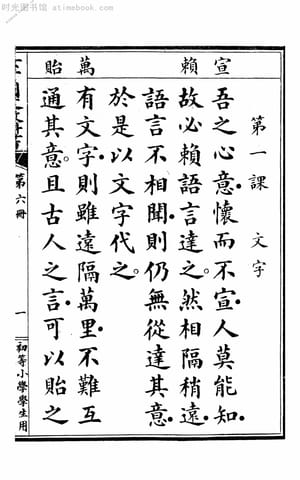 时光图书馆 atimebook.com
第一課　文字
宣　賴
吾之心意．懷而不宣．人莫能知．
故必賴語言達之。然相隔稍遠．
語言不相聞．則仍無從達其意．
於是以文字代之。
萬　貽
有文字．則雖遠隔萬里．不難互
通其意。且古人之言．可以貽之
第六冊
一
初等小學學生用